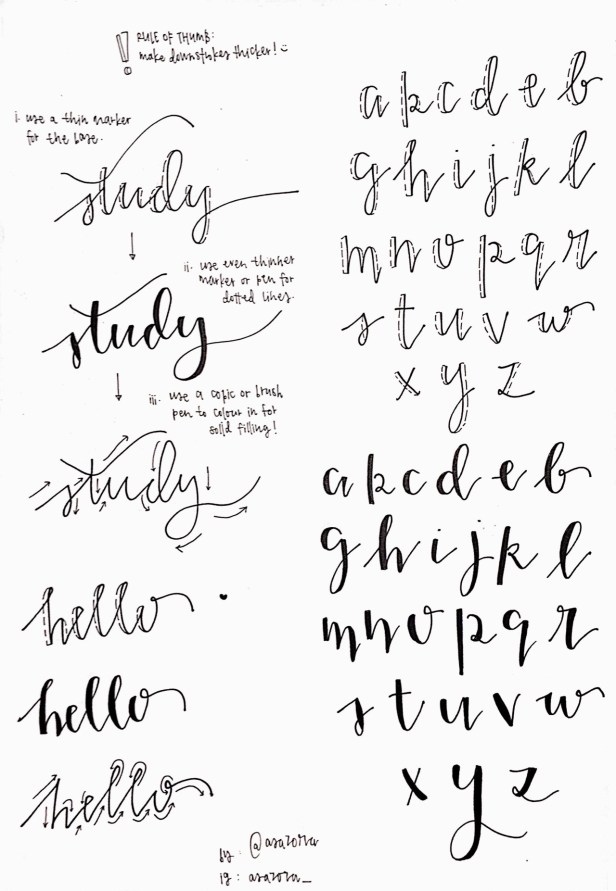 ! RULE OF THUMB:
make downstrokes thicker! :)
i. use a thin marker
for the base.
study
ii. use even thinner
marker or pen for
dotted lines.
study
iii. use a copic or brush
pen to colour in for
solid filling!
study
hello
hello
hello
a b c d e f
g h i j k l
m n o p q r
s t u v w
x y z
a b c d e f
g h i j k l
m n o p q r
s t u v w
x y z
by: @asazora
ig: asazora_